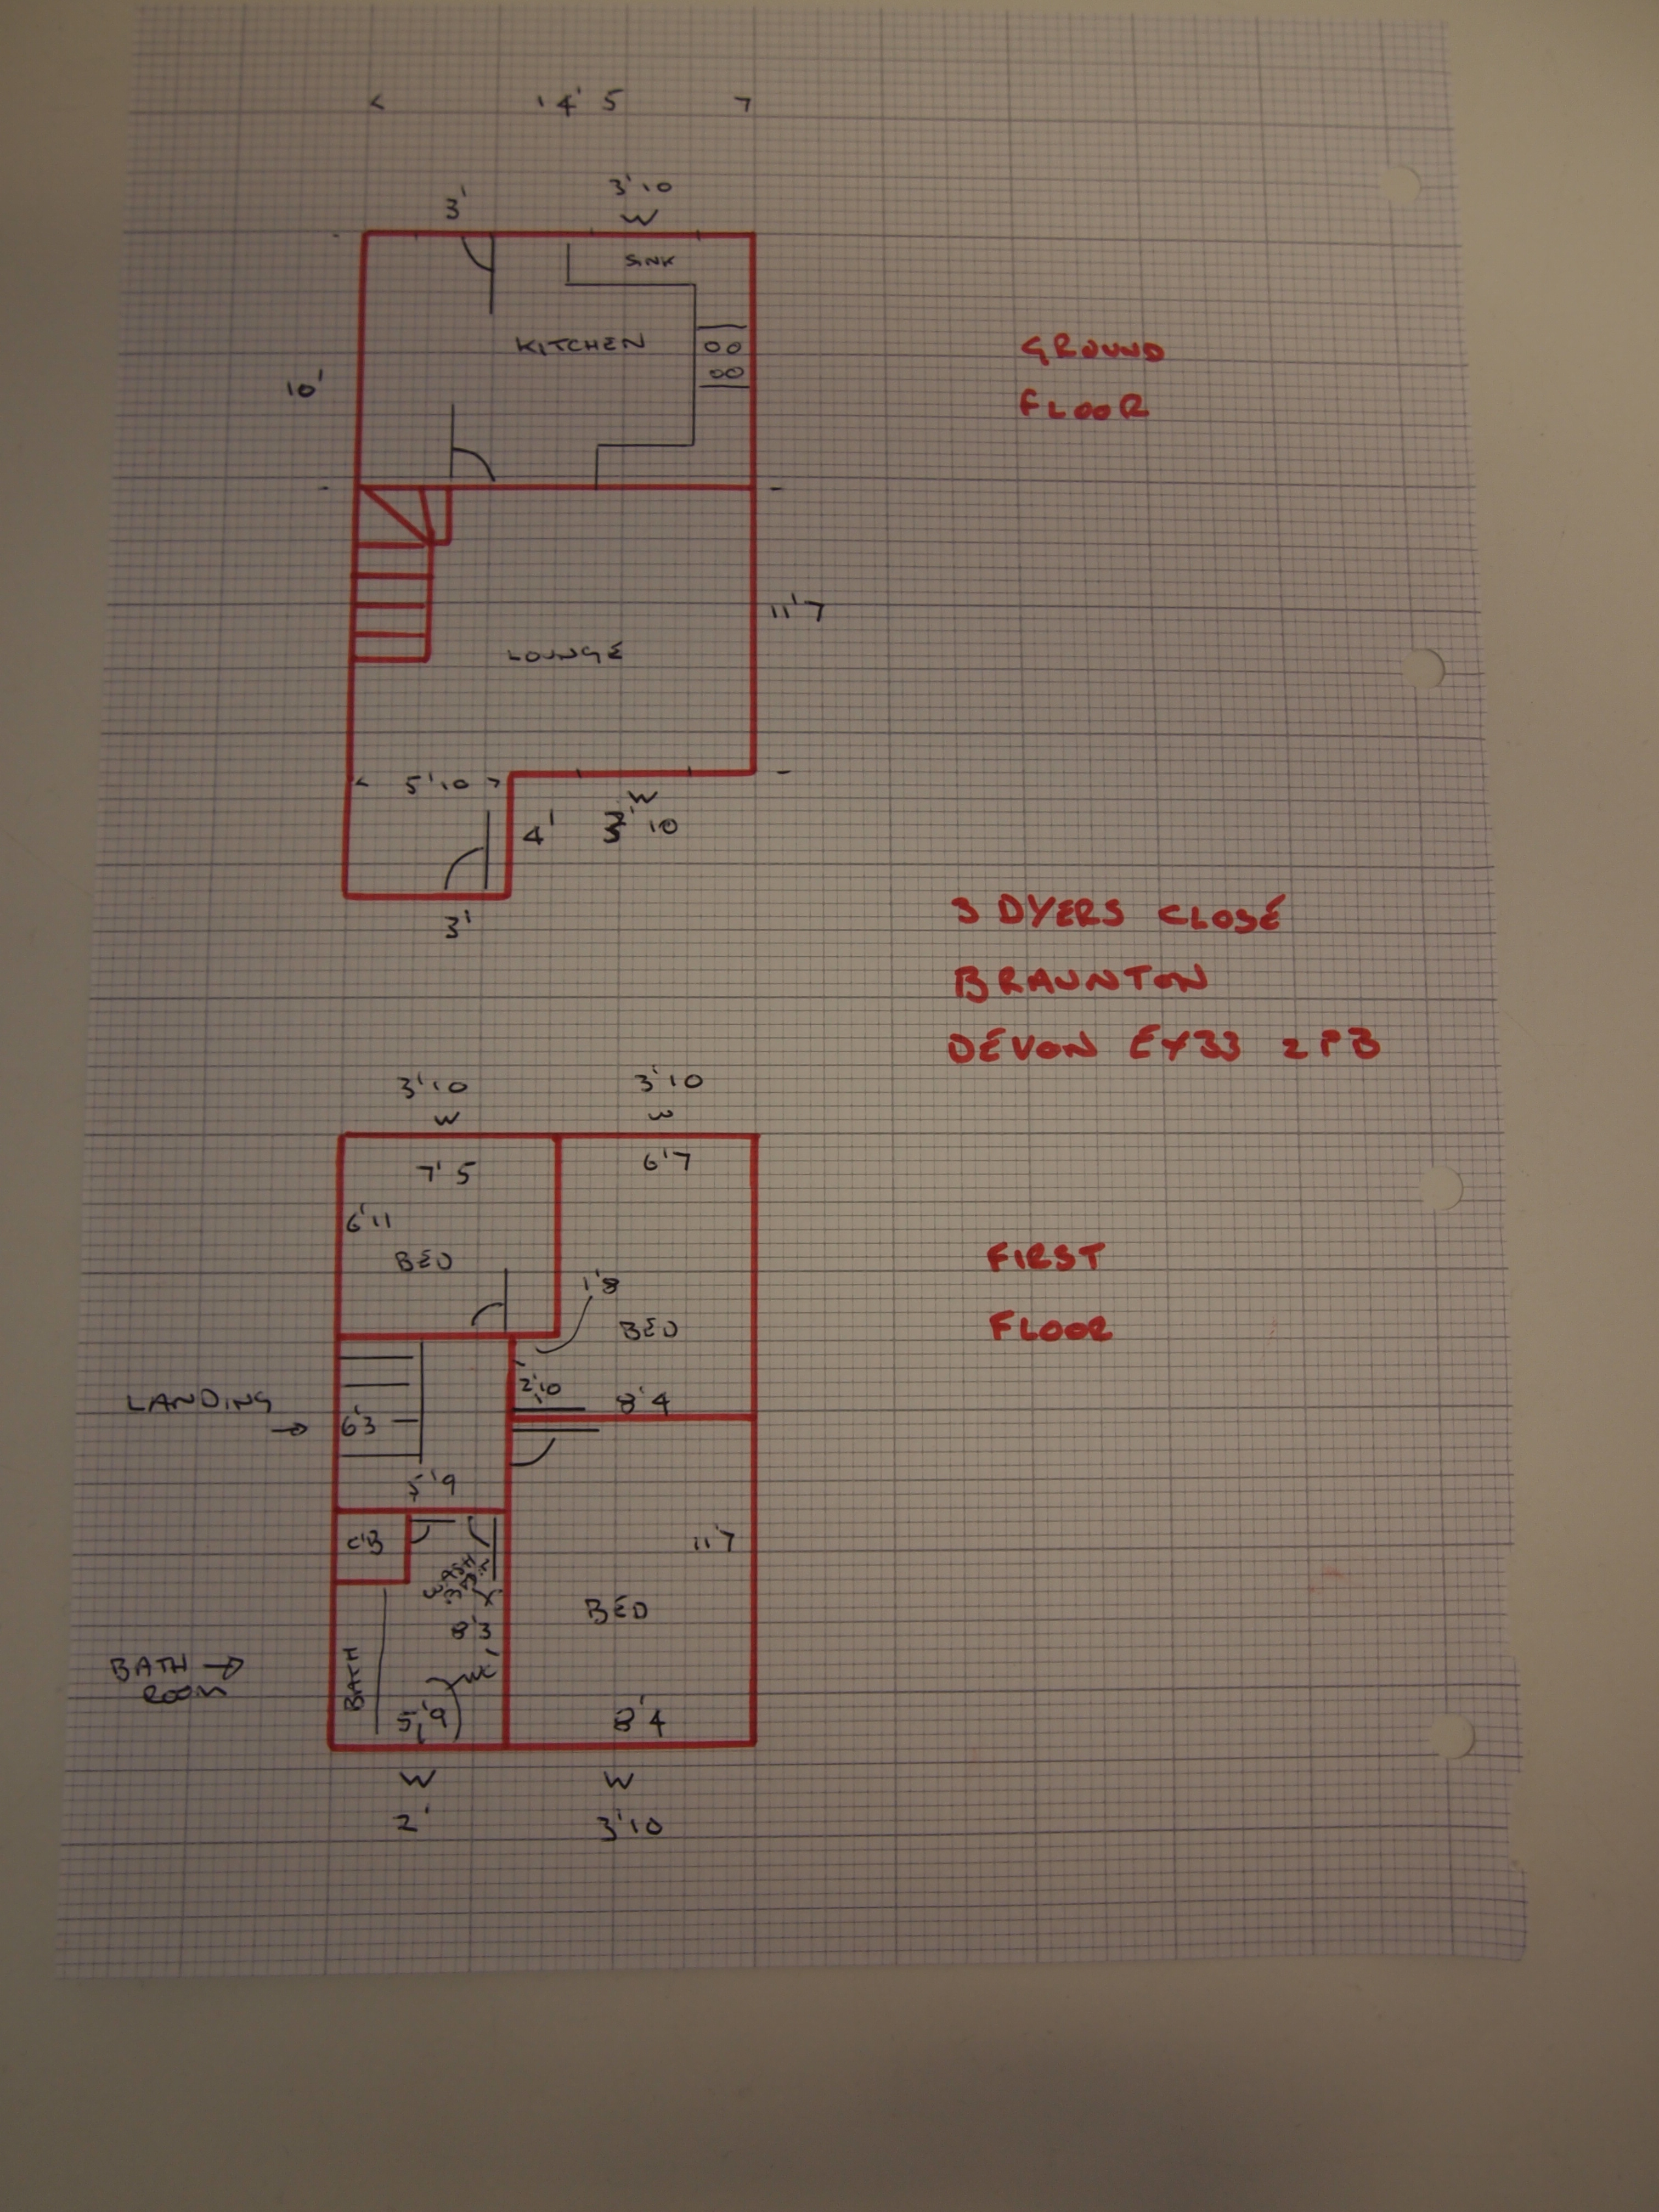 14' 5
3'
3'10
W
SINK
KITCHEN
10'
GROUND
FLOOR
11'7
LOUNGE
5'10
4'
W
3'10
3'
3 DYERS CLOSE
BRAUNTON
DEVON EX33 2PB
3'10
3'10
W
W
7'5
6'7
6'11
BED
1'8
BED
FIRST
FLOOR
2'10
8'4
LANDING
6'3
5'9
C'B
11'7
BED
8'3
BATH
ROOM
BATH
WC
5'9
8'4
W
W
2'
3'10